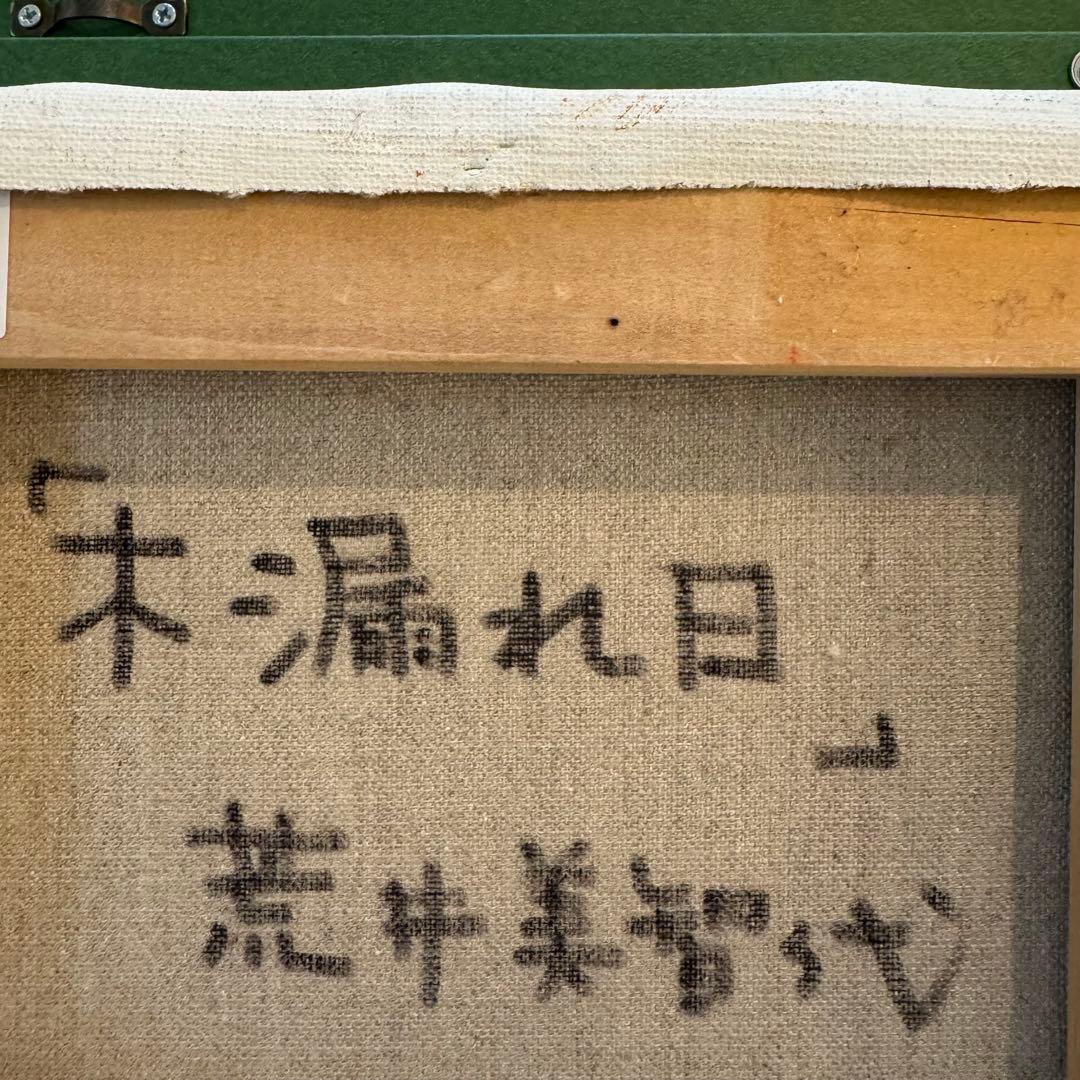 「木漏れ日」
荒井美智代